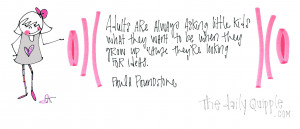 Adults are always asking little kids
what they want to be when they
grow up 'cause they're looking
for ideas.
Paula Poundstone
the daily quipple
.com